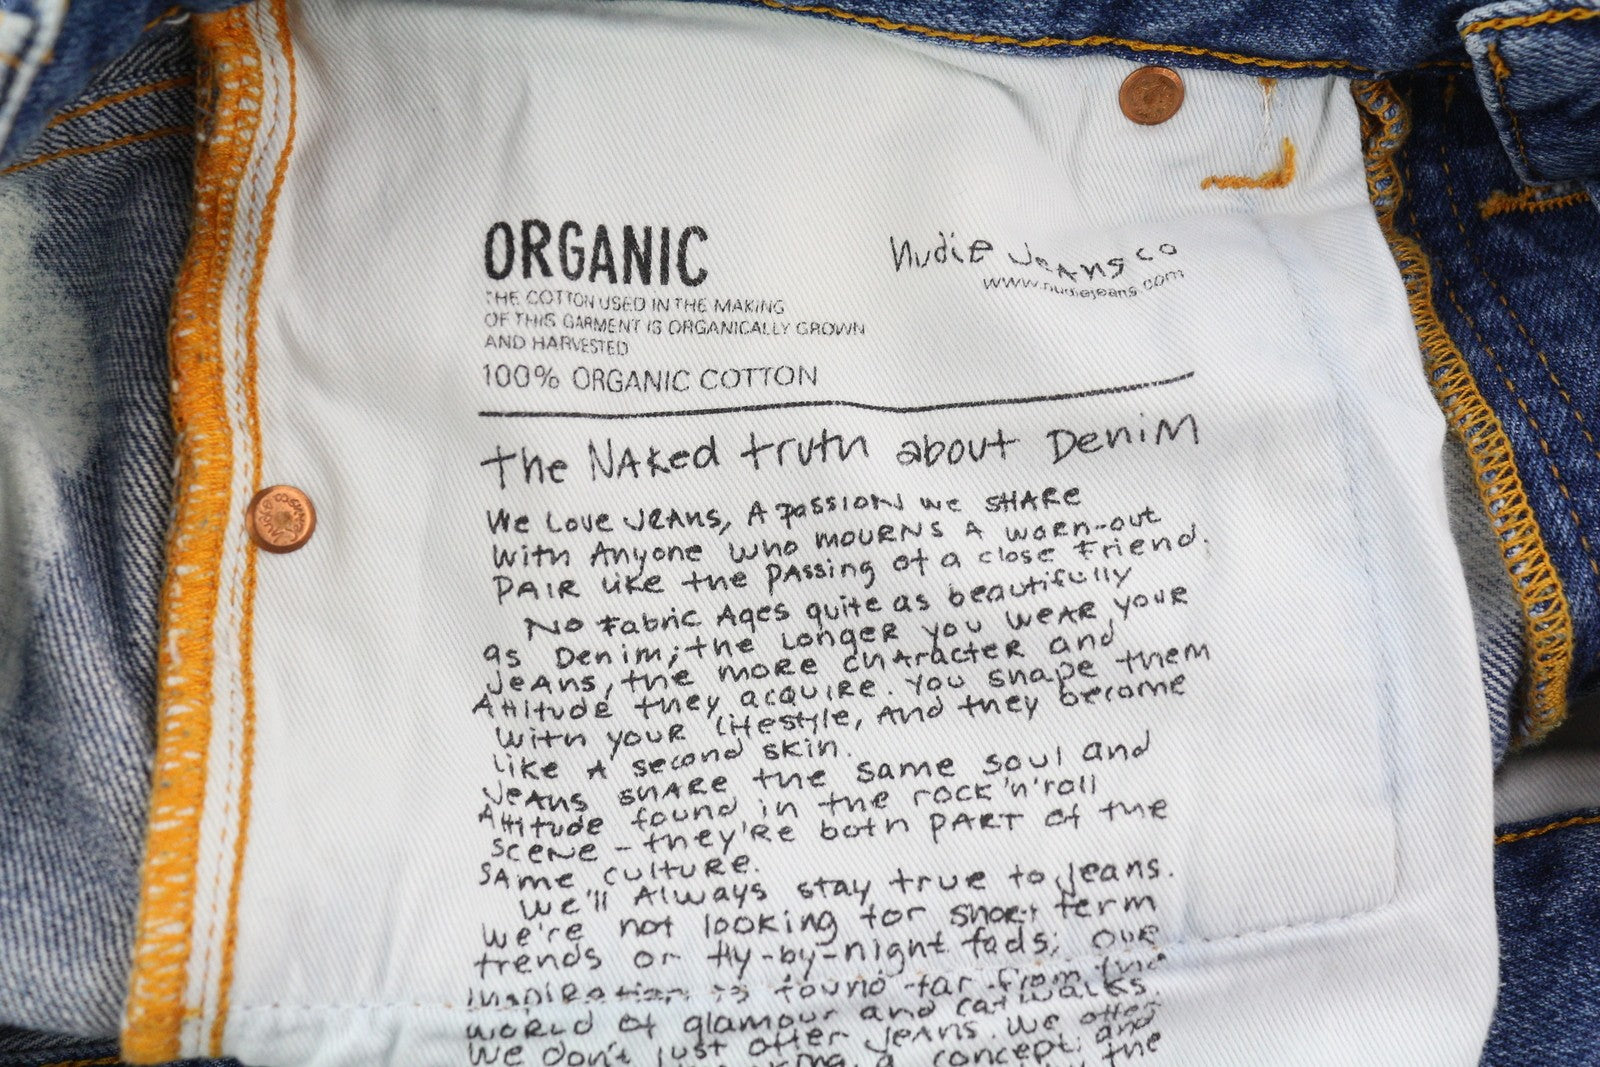 ORGANIC
THE COTTON USED IN THE MAKING
OF THIS GARMENT IS ORGANICALLY GROWN
AND HARVESTED
100% ORGANIC COTTON
Nudie Jeans co
www.nudiejeans.com
The Naked truth about Denim
We Love Jeans, A passion we share
With Anyone who mourns A worn-out
pair like the passing of a close Friend.
No Fabric Ages quite as beautifully
as Denim; the longer you wear your
Jeans, the more character and
Attitude they acquire. You shape them
with your lifestyle, and they become
like a second skin.
Jeans share the same soul and
Attitude found in the rock 'n' roll
scene - they're both part of the
same culture.
We'll Always stay true to Jeans.
We're not looking for short term
trends or fly-by-night fads; our
inspiration is found far from the
world of glamour and catwalks.
We don't just offer Jeans. We offer
a concept; and
the